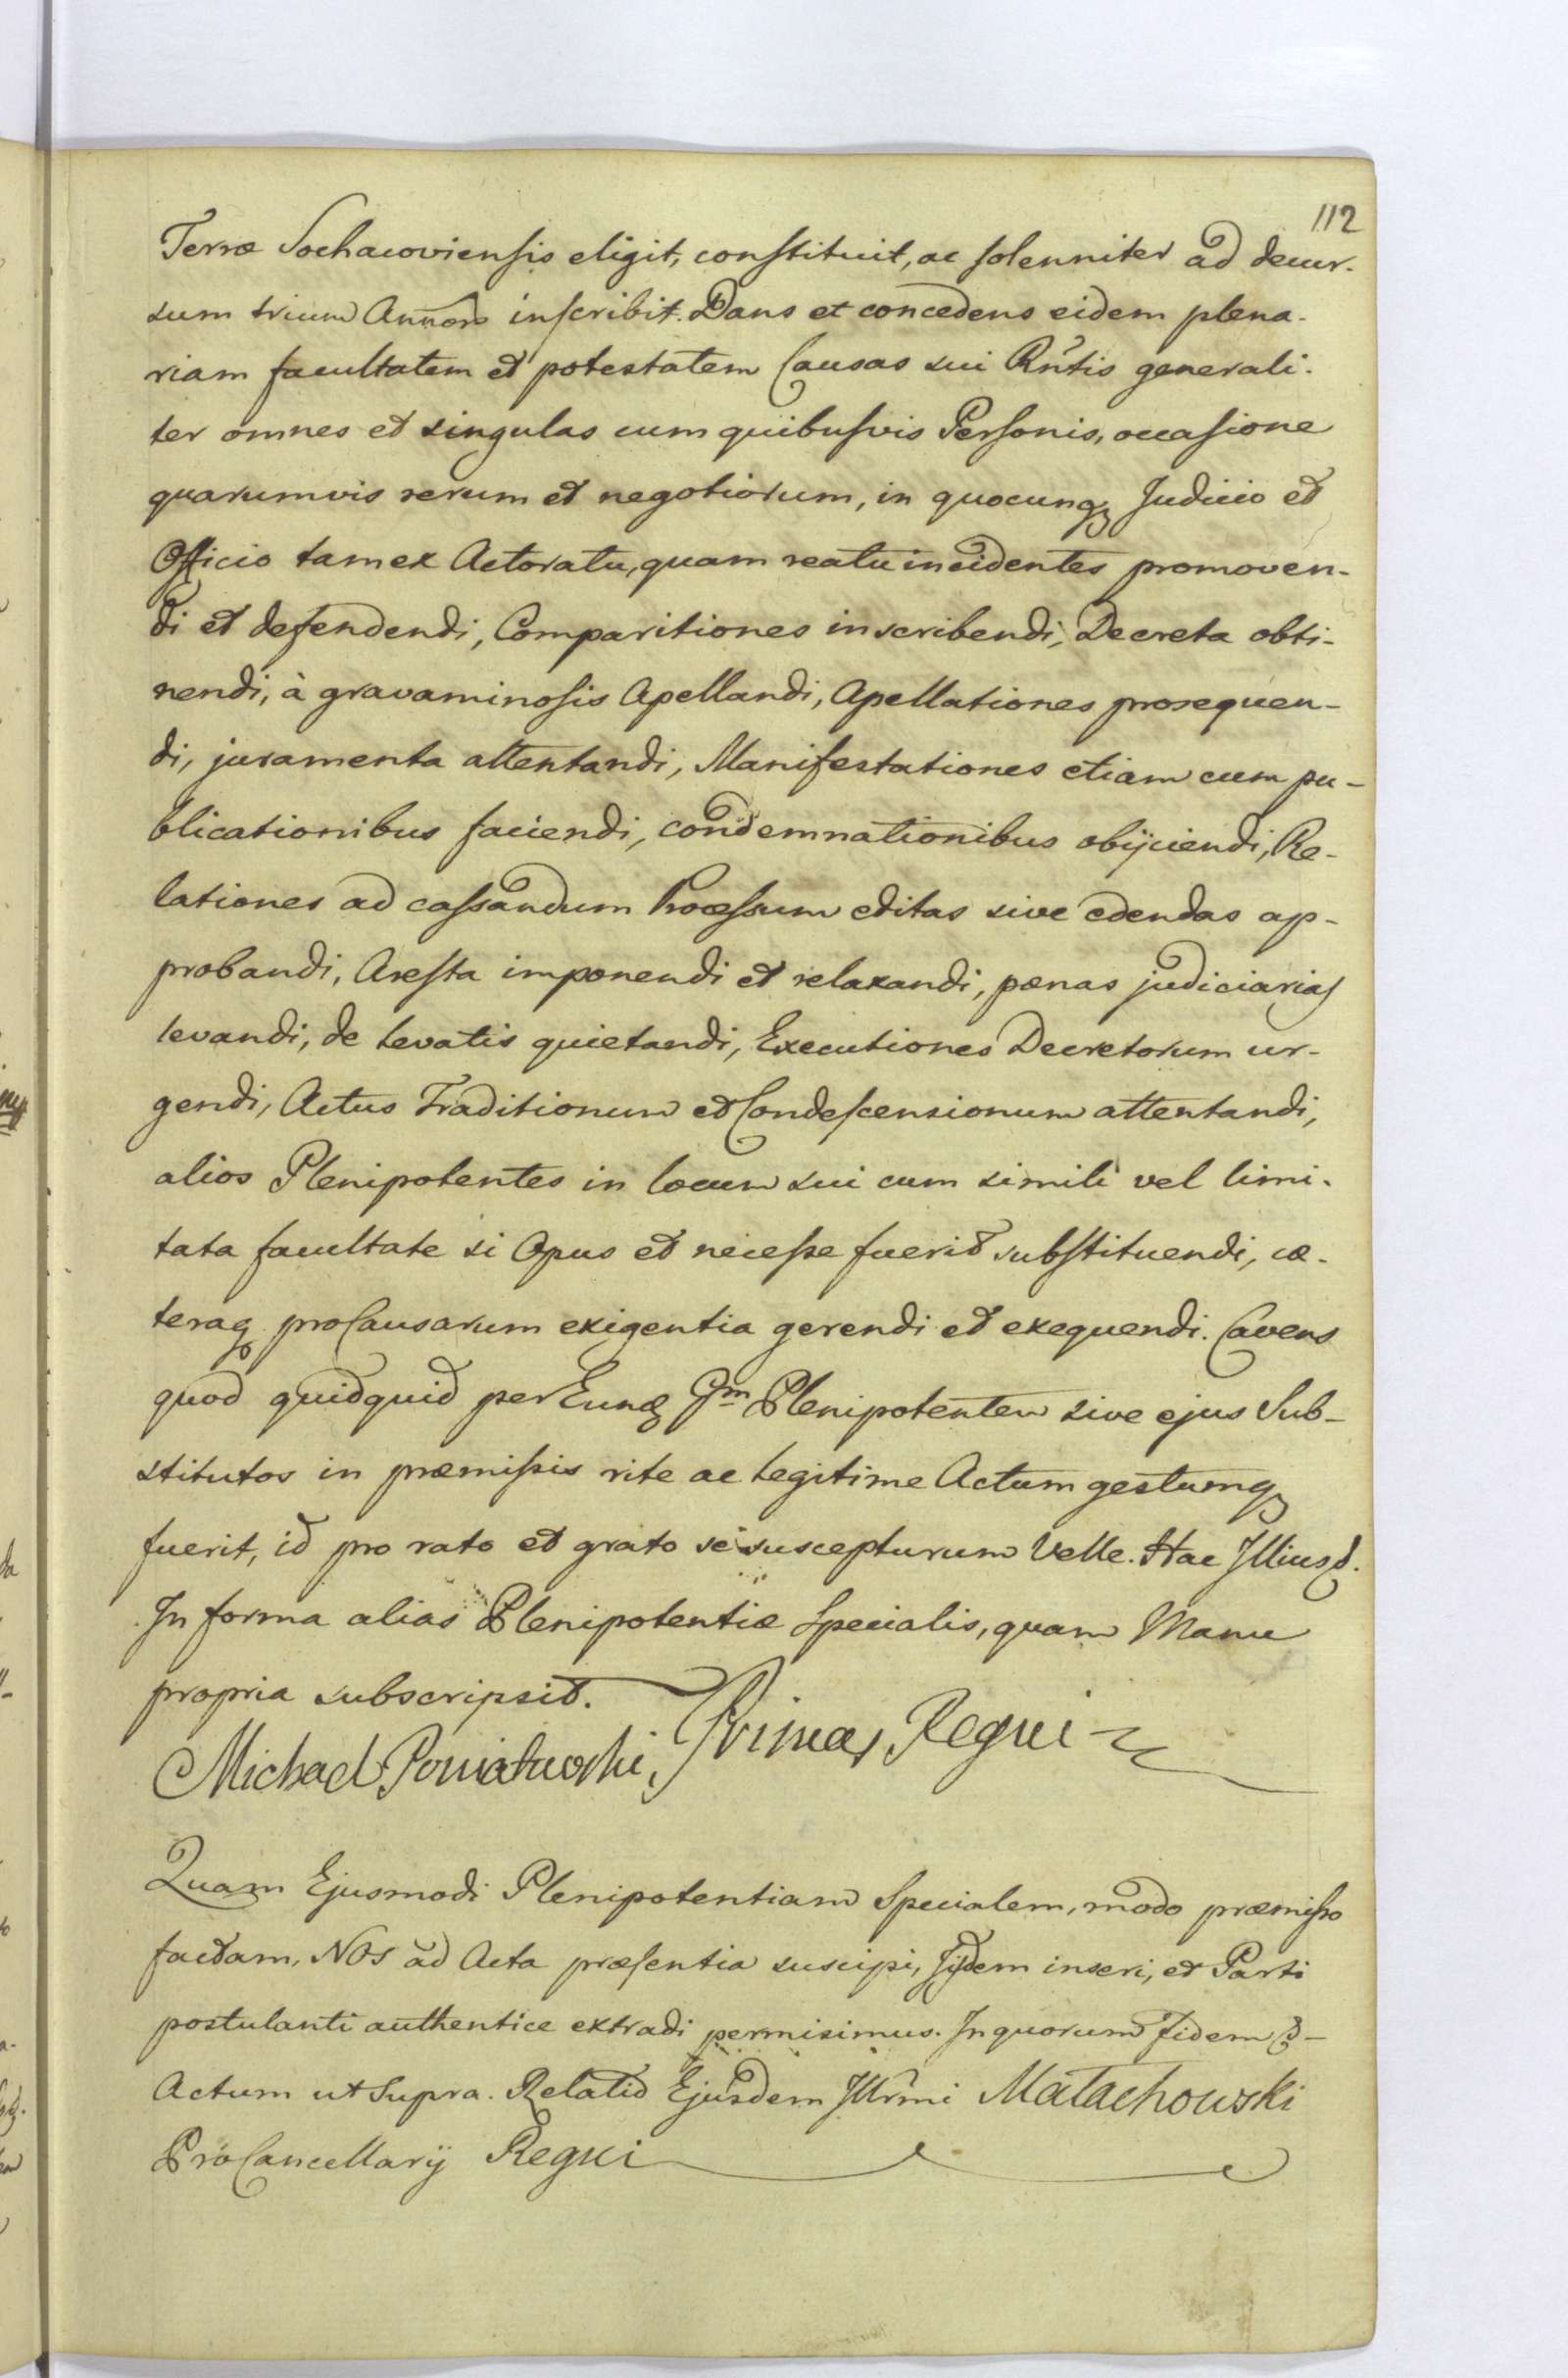 112
Terræ Sochacoviensis eligit, constituit, ac solenniter ad decur-
sum trium Annorũ inscribit. Dans et concedens eidem plena-
riam facultatem et potestatem Causas sui Rñtis generali-
ter omnes et singulas cum quibusvis Personis, occasione
quarumvis rerum et negotiorum, in quocunq Judicio et
Officio tam ex Actoratu, quam reatu incidentes promoven-
di et defendendi, Comparitiones inscribendi, Decreta obti-
nendi, à gravaminosis Apellandi, Apellationes prosequen-
di, juramenta attentandi, Manifestationes etiam cum pu-
blicationibus faciendi, condemnationibus obijciendi, Re-
lationes ad cassandum Processum editas sive edendas ap-
probandi, Aresta imponendi et relaxandi, pænas judiciarias
levandi, de levatis quietandi, Executiones Decretorum ur-
gendi, Actus Traditionum et Condescensionum attentandi,
alios Plenipotentes in locum sui cum simili vel limi-
tata facultate si Opus et necesse fuerit substituendi, cæ-
teraq pro Causarum exigentia gerendi et exequendi. Cavens
quod quidquid per Eund Gm Plenipotentem sive ejus Sub-
stitutos in præmissis rite ac legitime Actum gestumq
fuerit, id pro rato et grato se suscepturum Velle. Hac Illiusd.
In forma alias Plenipotentiæ Specialis, quam Manu
propria subscripsit.
Michael Poniatowski, Primas Regni
Quam Ejusmodi Plenipotentiam Specialem, modo præmisso
factam, NOS ad Acta præsentia suscipi, Jisdem inseri, et Parti
postulanti authentice extradi permisimus. In quorum Fidem &
Actum ut Supra. Relatio Ejusdem Jllrmi Małachowski
ProCancellarij Regni